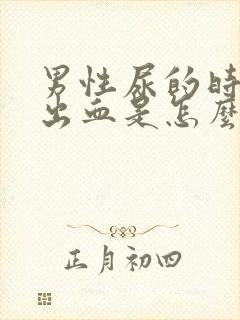 男性尿的时
出血是怎麼
正月初四